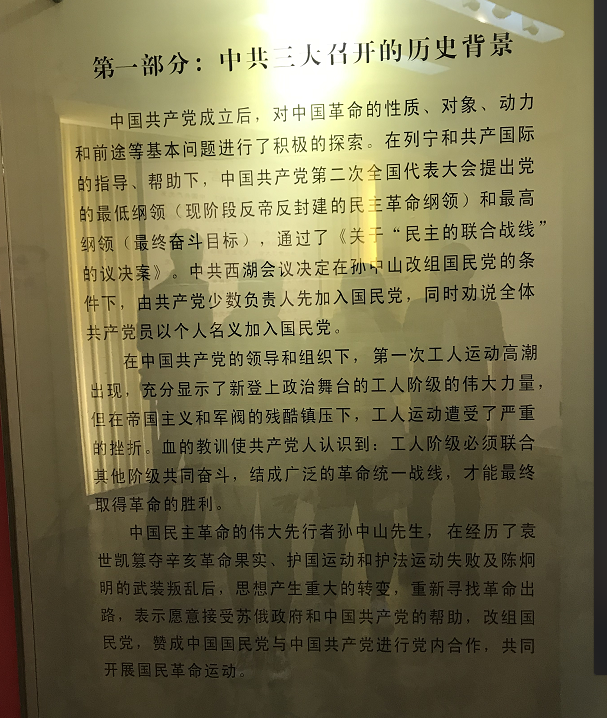 第一部分：中共三大召开的历史背景
中国共产党成立后，对中国革命的性质、对象、动力
和前途等基本问题进行了积极的探索。在列宁和共产国际
的指导、帮助下，中国共产党第二次全国代表大会提出党
的最低纲领（现阶段反帝反封建的民主革命纲领）和最高
纲领（最终奋斗目标），通过了《关于“民主的联合战线”
的议决案》。中共西湖会议决定在孙中山改组国民党的条
件下，由共产党少数负责人先加入国民党，同时劝说全体
共产党员以个人名义加入国民党。
在中国共产党的领导和组织下，第一次工人运动高潮
出现，充分显示了新登上政治舞台的工人阶级的伟大力量，
但在帝国主义和军阀的残酷镇压下，工人运动遭受了严重
的挫折。血的教训使共产党人认识到：工人阶级必须联合
其他阶级共同奋斗，结成广泛的革命统一战线，才能最终
取得革命的胜利。
中国民主革命的伟大先行者孙中山先生，在经历了袁
世凯篡夺辛亥革命果实、护国运动和护法运动失败及陈炯
明的武装叛乱后，思想产生重大的转变，重新寻找革命出
路，表示愿意接受苏俄政府和中国共产党的帮助，改组国
民党，赞成中国国民党与中国共产党进行党内合作，共同
开展国民革命运动。